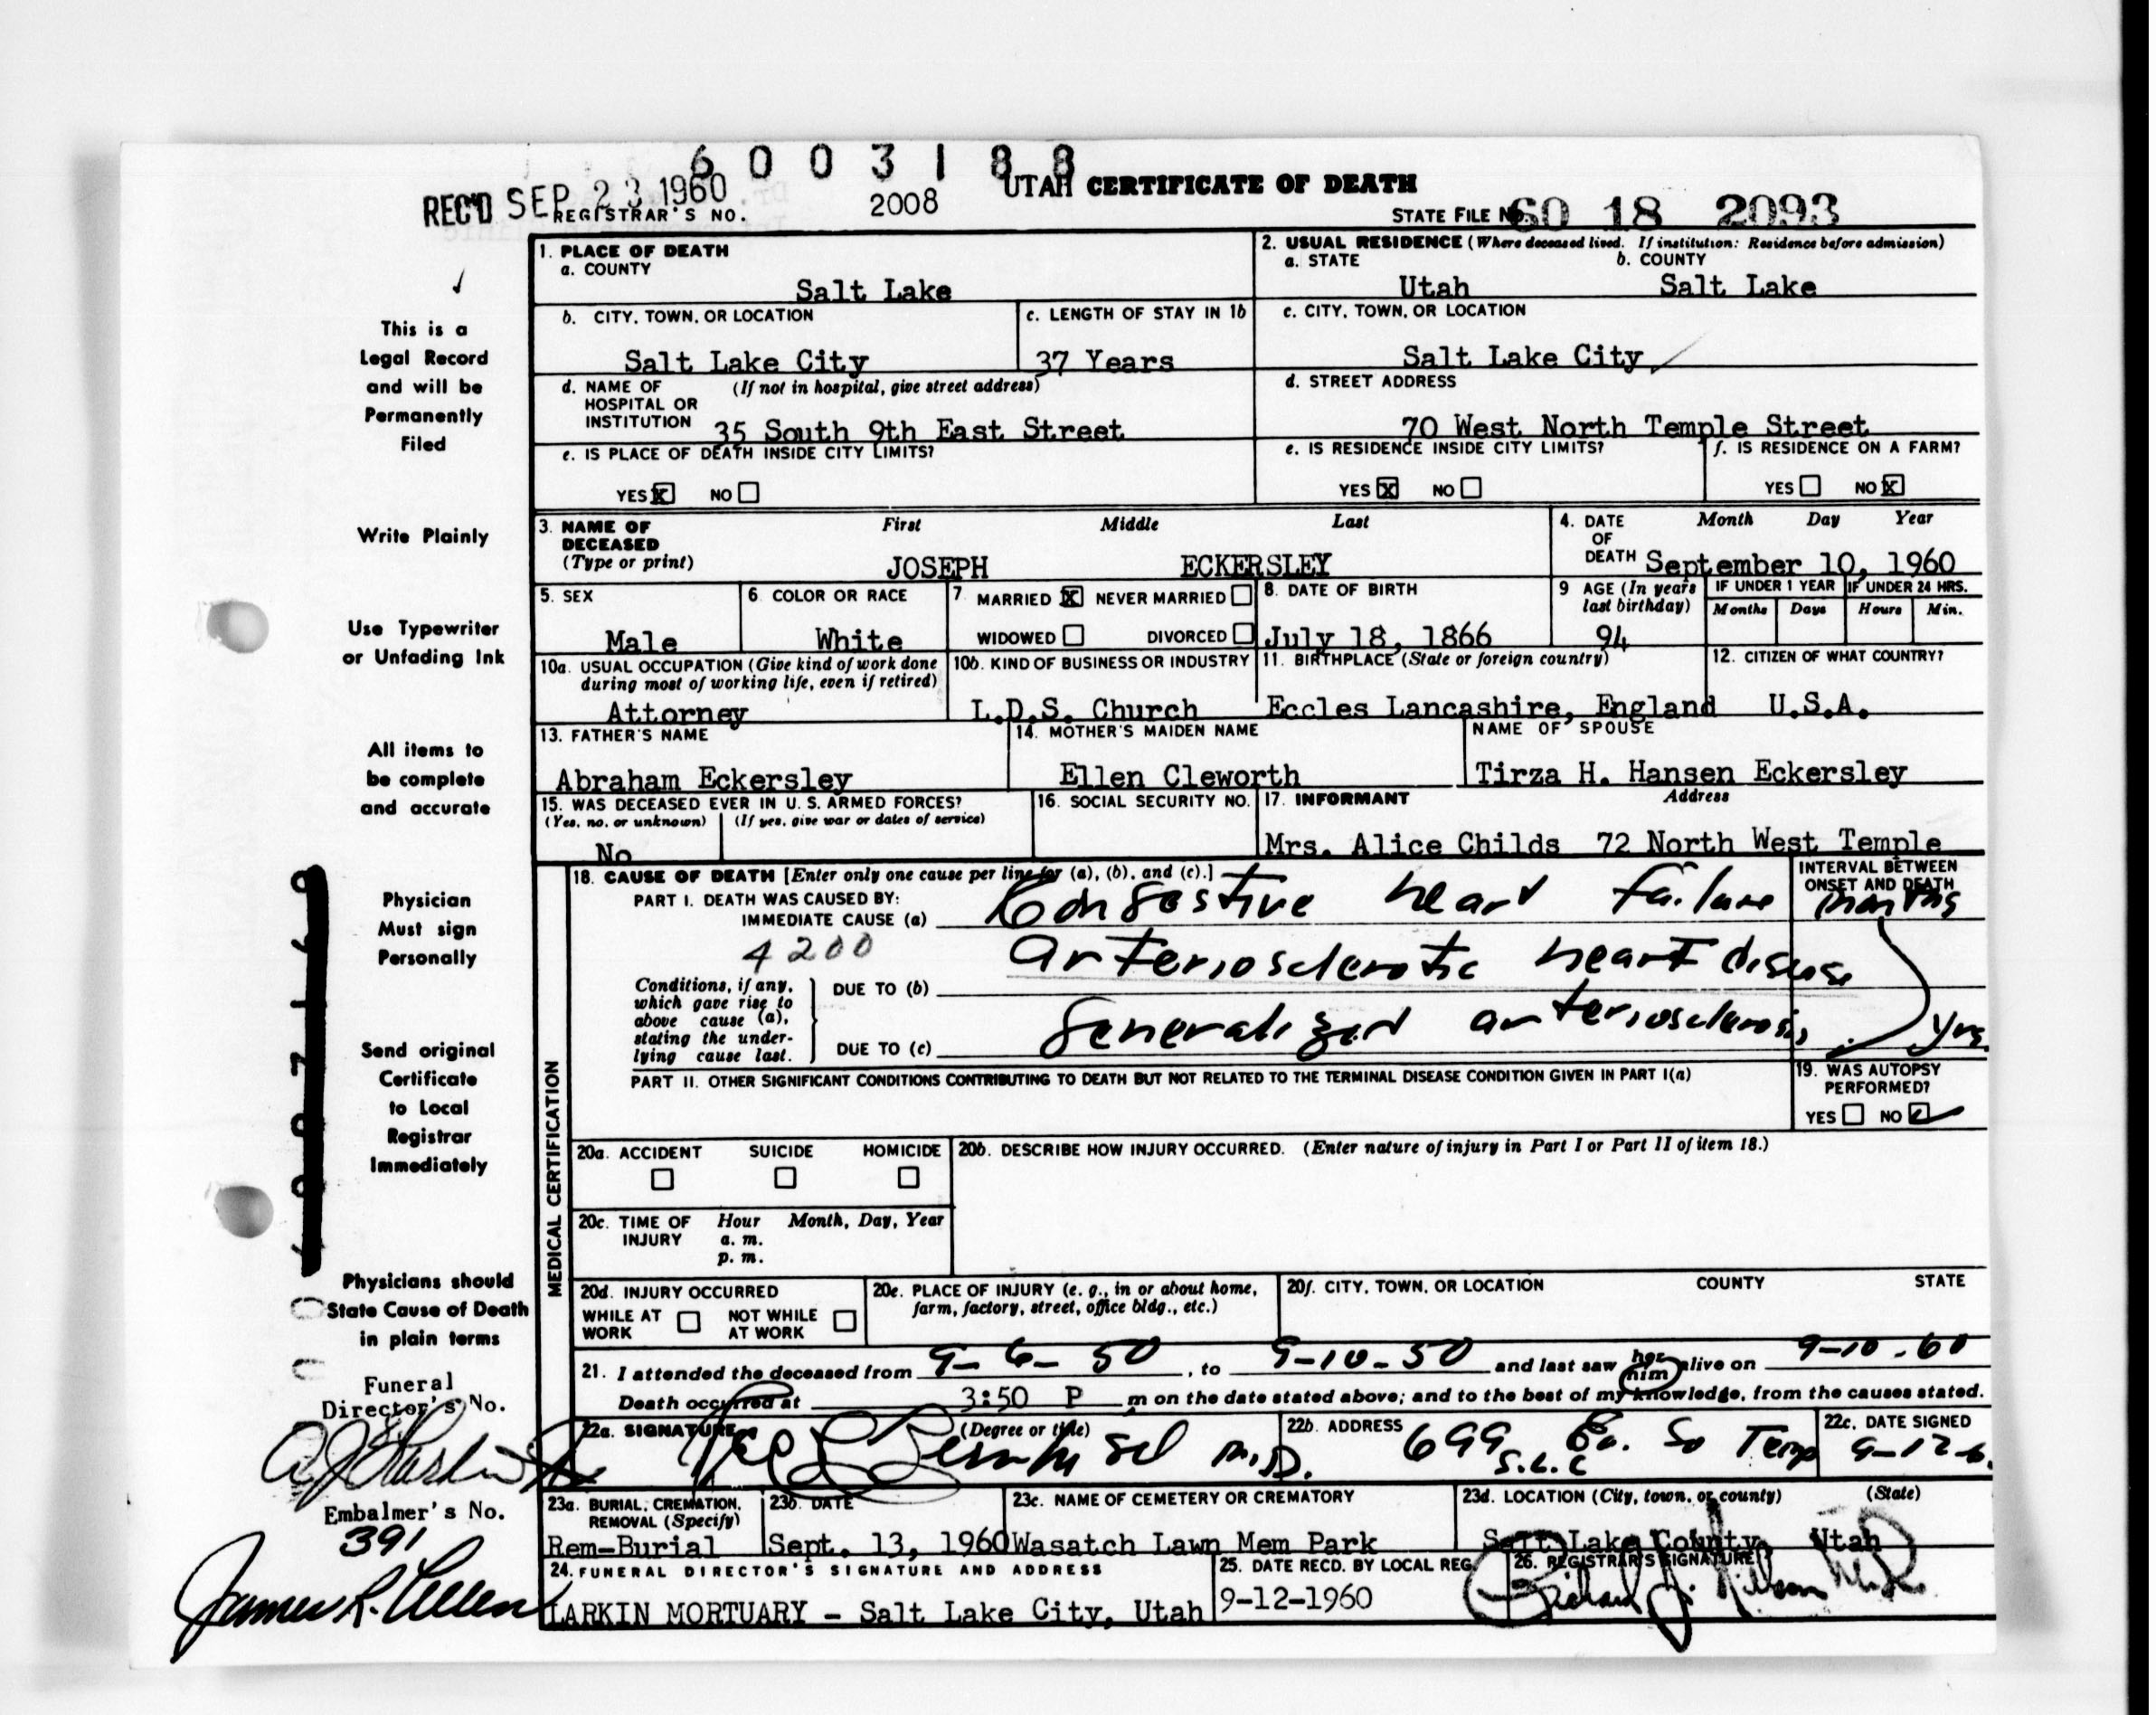 6 0 0 3 1 8 8
REC'D SEP 23 1960
REGISTRAR'S NO. 2008
UTAH CERTIFICATE OF DEATH
STATE FILE NO. 60 18 2093
1. PLACE OF DEATH
a. COUNTY
Salt Lake
2. USUAL RESIDENCE (Where deceased lived. If institution: Residence before admission)
a. STATE b. COUNTY
Utah Salt Lake
b. CITY, TOWN, OR LOCATION
Salt Lake City
c. LENGTH OF STAY IN 1b
37 Years
c. CITY, TOWN, OR LOCATION
Salt Lake City
d. NAME OF (If not in hospital, give street address)
HOSPITAL OR
INSTITUTION 35 South 9th East Street
d. STREET ADDRESS
70 West North Temple Street
e. IS PLACE OF DEATH INSIDE CITY LIMITS?
YES X NO
e. IS RESIDENCE INSIDE CITY LIMITS?
YES X NO
f. IS RESIDENCE ON A FARM?
YES NO X
3. NAME OF DECEASED (Type or print)
First Middle Last
JOSEPH ECKERSLEY
4. DATE OF DEATH
Month Day Year
September 10, 1960
5. SEX
Male
6. COLOR OR RACE
White
7. MARRIED X NEVER MARRIED
WIDOWED DIVORCED
8. DATE OF BIRTH
July 18, 1866
9 AGE (In years last birthday)
94
IF UNDER 1 YEAR
Months Days
IF UNDER 24 HRS.
Hours Min.
10a. USUAL OCCUPATION (Give kind of work done
during most of working life, even if retired)
Attorney
10b. KIND OF BUSINESS OR INDUSTRY
L.D.S. Church
11. BIRTHPLACE (State or foreign country)
Eccles Lancashire, England
12. CITIZEN OF WHAT COUNTRY?
U.S.A.
13. FATHER'S NAME
Abraham Eckersley
14. MOTHER'S MAIDEN NAME
Ellen Cleworth
NAME OF SPOUSE
Tirza H. Hansen Eckersley
15. WAS DECEASED EVER IN U. S. ARMED FORCES?
(Yes, no, or unknown) (If yes, give war or dates of service)
No
16. SOCIAL SECURITY NO.
17. INFORMANT Address
Mrs. Alice Childs 72 North West Temple
MEDICAL CERTIFICATION
18. CAUSE OF DEATH [Enter only one cause per line for (a), (b), and (c).]
PART I. DEATH WAS CAUSED BY:
IMMEDIATE CAUSE (a) Congestive heart failure
INTERVAL BETWEEN
ONSET AND DEATH
months
4200
Conditions, if any,
which gave rise to
above cause (a),
stating the under-
lying cause last.
DUE TO (b) arteriosclerotic heart disease
DUE TO (c) Generalized arteriosclerosis yrs.
PART II. OTHER SIGNIFICANT CONDITIONS CONTRIBUTING TO DEATH BUT NOT RELATED TO THE TERMINAL DISEASE CONDITION GIVEN IN PART I(a)
19. WAS AUTOPSY
PERFORMED?
YES NO
20a. ACCIDENT SUICIDE HOMICIDE
20b. DESCRIBE HOW INJURY OCCURRED. (Enter nature of injury in Part I or Part II of item 18.)
20c. TIME OF INJURY
Hour Month, Day, Year
a. m.
p. m.
20d. INJURY OCCURRED
WHILE AT WORK NOT WHILE AT WORK
20e. PLACE OF INJURY (e. g., in or about home,
farm, factory, street, office bldg., etc.)
20f. CITY, TOWN, OR LOCATION COUNTY STATE
21. I attended the deceased from 9-6-50, to 9-10-50 and last saw her him alive on 9-10-60
Death occurred at 3:50 P m on the date stated above; and to the best of my knowledge, from the causes stated.
22a. SIGNATURE (Degree or title)
M.D.
22b. ADDRESS
699 Ea. So Temp
S.L.C
22c. DATE SIGNED
9-12-6
23a. BURIAL, CREMATION,
REMOVAL (Specify)
Rem-Burial
23b. DATE
Sept. 13, 1960
23c. NAME OF CEMETERY OR CREMATORY
Wasatch Lawn Mem Park
23d. LOCATION (City, town, or county) (State)
Salt Lake County, Utah
24. FUNERAL DIRECTOR'S SIGNATURE AND ADDRESS
LARKIN MORTUARY - Salt Lake City, Utah
25. DATE RECD. BY LOCAL REG
9-12-1960
26. REGISTRAR'S SIGNATURE
This is a
Legal Record
and will be
Permanently
Filed
Write Plainly
Use Typewriter
or Unfading Ink
All items to
be complete
and accurate
Physician
Must sign
Personally
Send original
Certificate
to Local
Registrar
Immediately
Physicians should
State Cause of Death
in plain terms
Funeral
Director's No.
Embalmer's No.
391